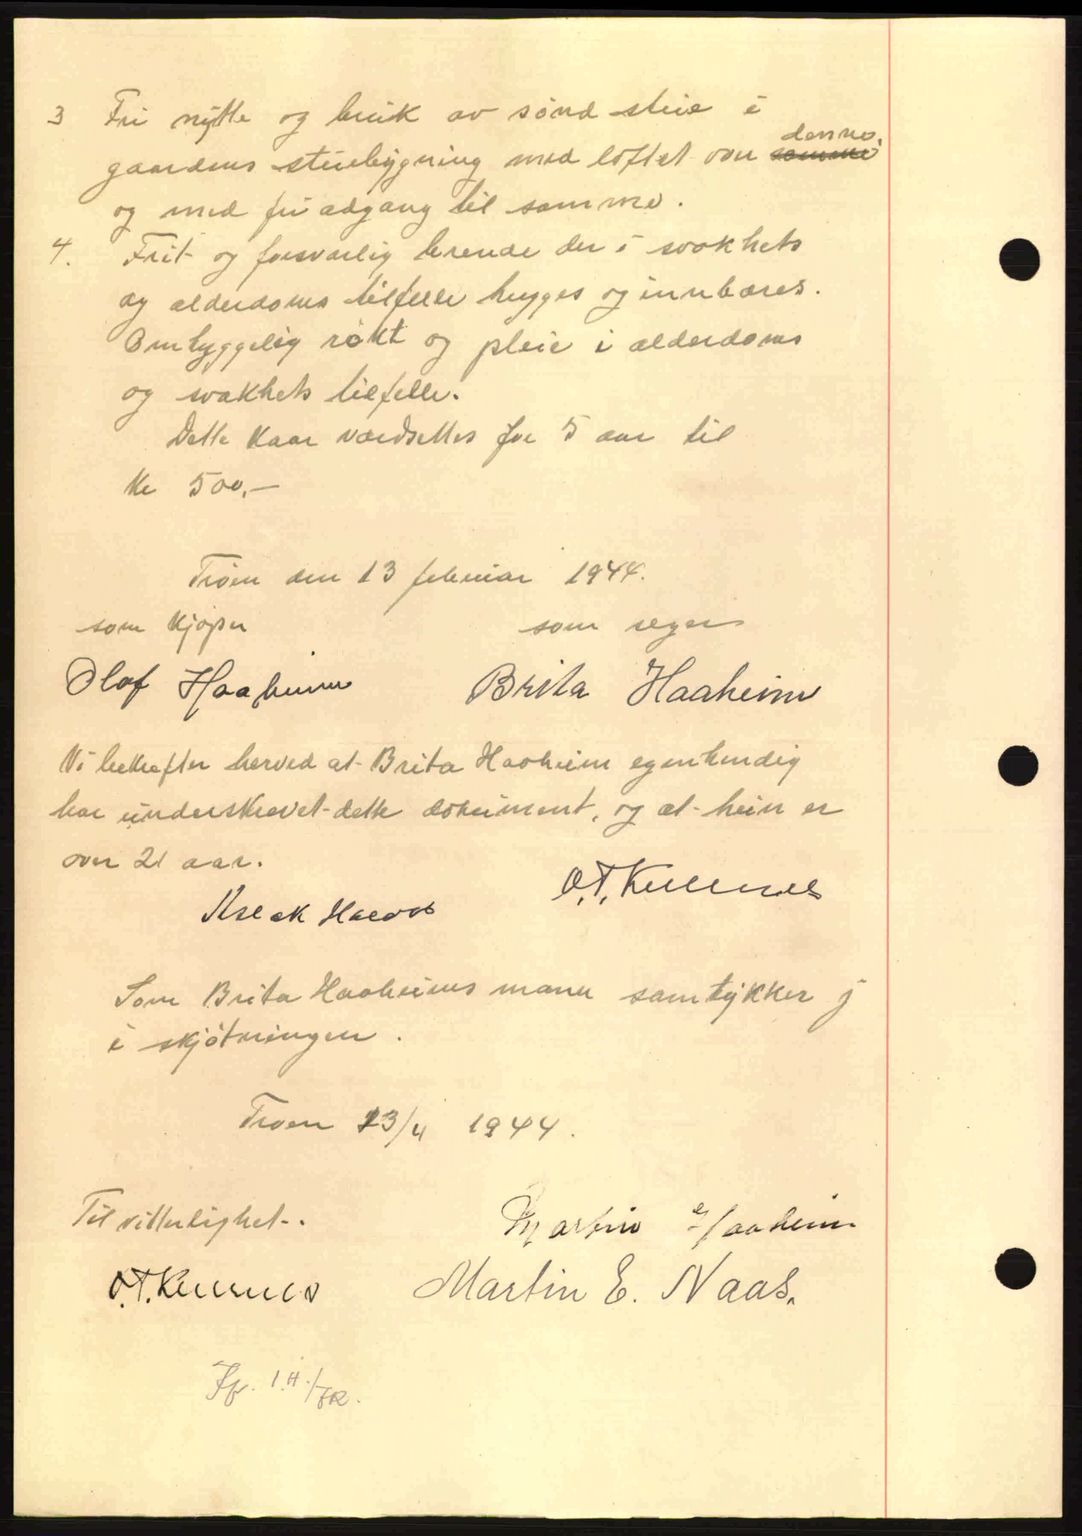 3 Fri nytte og bruk av sønd stue i
gaardens stuebygning med loftet over denne. ~~samme~~
og med fri adgang til samme.
4. Frit og forsvarlig brende der i svakhets
og alderdoms tilfelle hugges og innbæres.
Omhyggelig røkt og pleie i alderdoms
og svakhets tilfelle.
Dette kaar verdsettes for 5 aar til
kr 500,—
Troen den 13 februar 1944.
som kjøper som selger
Olaf Haaheim Brita Haaheim
Vi bekrefter herved at Brita Haaheim egenhendig
har underskrevet dette dokument, og at hun er
over 21 aar.
O.T.
Som Brita Haaheims mann samtykker j
i skjøtningen.
Troen 13/4 1944.
Til vitterlighet.
Martin Haaheim
O.T. Martin E. Naas.